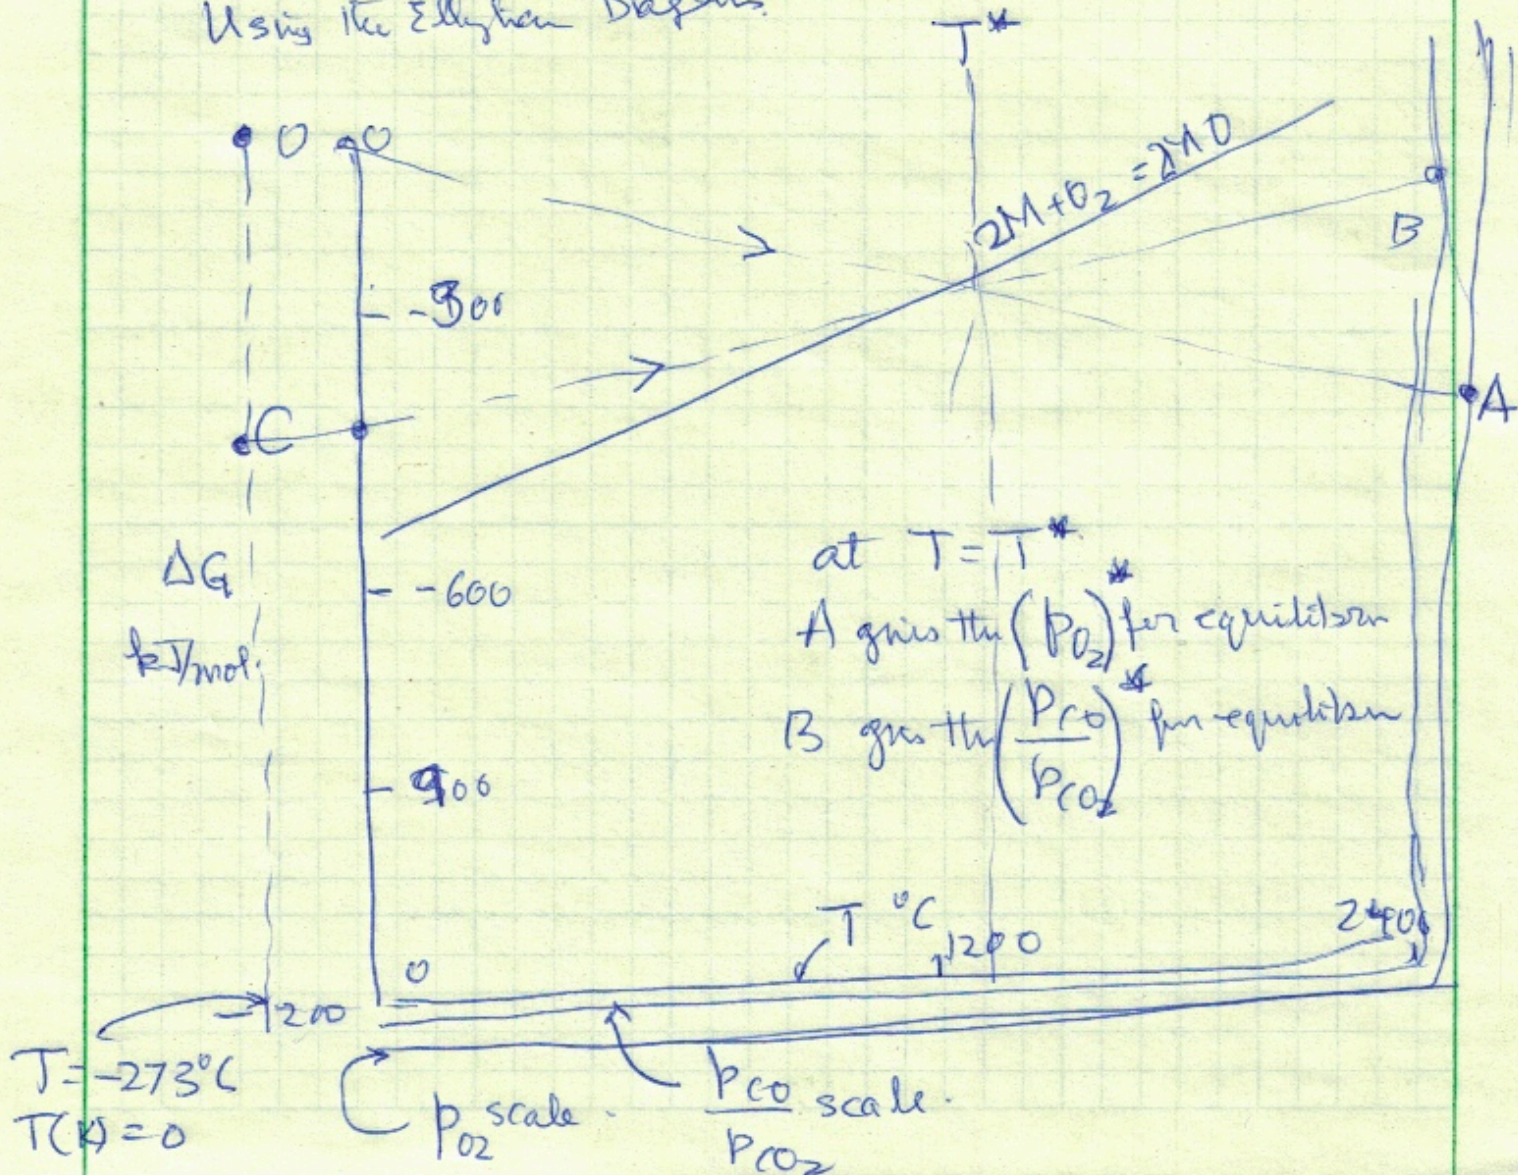 Using the Ellingham Diagram
T*
O O
2M+O₂ = 2MO
B
-300
A
C
at T = T*
ΔG
-600
A gives the (pO₂)* for equilibrium
kJ/mol
B gives the (pCO/pCO₂)* for equilibrium
900
T °C
1200
2400
0
1200
T = -273°C
T(K) = 0
pO₂ scale.
pCO/pCO₂ scale.